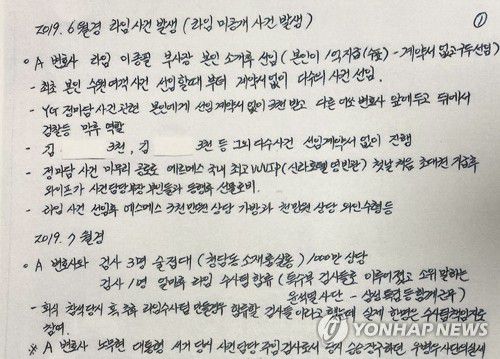 ①
2019. 6월경 라임사건 발생 (라임 미공개 사건 발생)
○ A 변호사 라임 이종필 부사장 본인 소개후 선임 (본인이 1억지급(수표) - 계약서 없고 구두선임)
- 최초 본인 수원여객사건 선임할때부터 계약서없이 다수의 사건 선임.
- YG 전마담 사건관련 본인에게 선임계약서없이 3천 받고 다른 변호사 앞에두고 뒤에서
검찰등 막후 역할
- 김 3천, 김 3천 등 그외 다수사건 선임계약서 없이 진행
- 정마담 사건 마무리 에르메스 국내 최고 VVIP (신라호텔 영빈관) 첫날 처음 초대전 지급후
와이프가 사건담당부장 부인들과 동행후 선물로비.
- 라임 사건 선임후 에르메스 3천만원 상당 가방과 천만원 상당 와인수령 등
2019. 7월경
○ A 변호사와 검사 3명 술접대 (청담동 소재 룸살롱) 1000만 상당
검사 1명 얼마후 라임 수사팀 합류 (특수부 검사들로 이루어졌고 소위 말하는
윤석열 사단 - 삼성 특검 등 함께 근무)
- 회식 참석당시 추후 라임수사팀 만들경우 합류할 검사들이라고 했는데 실제 한명은 수사팀 책임자로
참여.
※ A 변호사 노무현 대통령 서거 당시 사건담당 주임검사로서 당시 승승장구하던, 우병우사단의 실세
YONHAPNEWS
연합뉴스